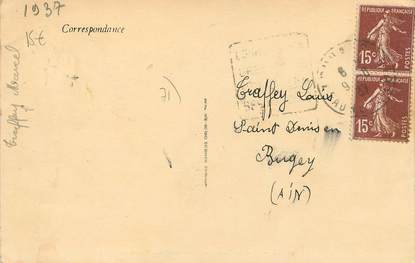 1937
15€
Correspondance
Traffey Marcel
Traffey Louis
Saint Denis en
Bugey
(AIN)
REPUBLIQUE FRANÇAISE
15c
POSTES
REPUBLIQUE FRANÇAISE
15c
POSTES